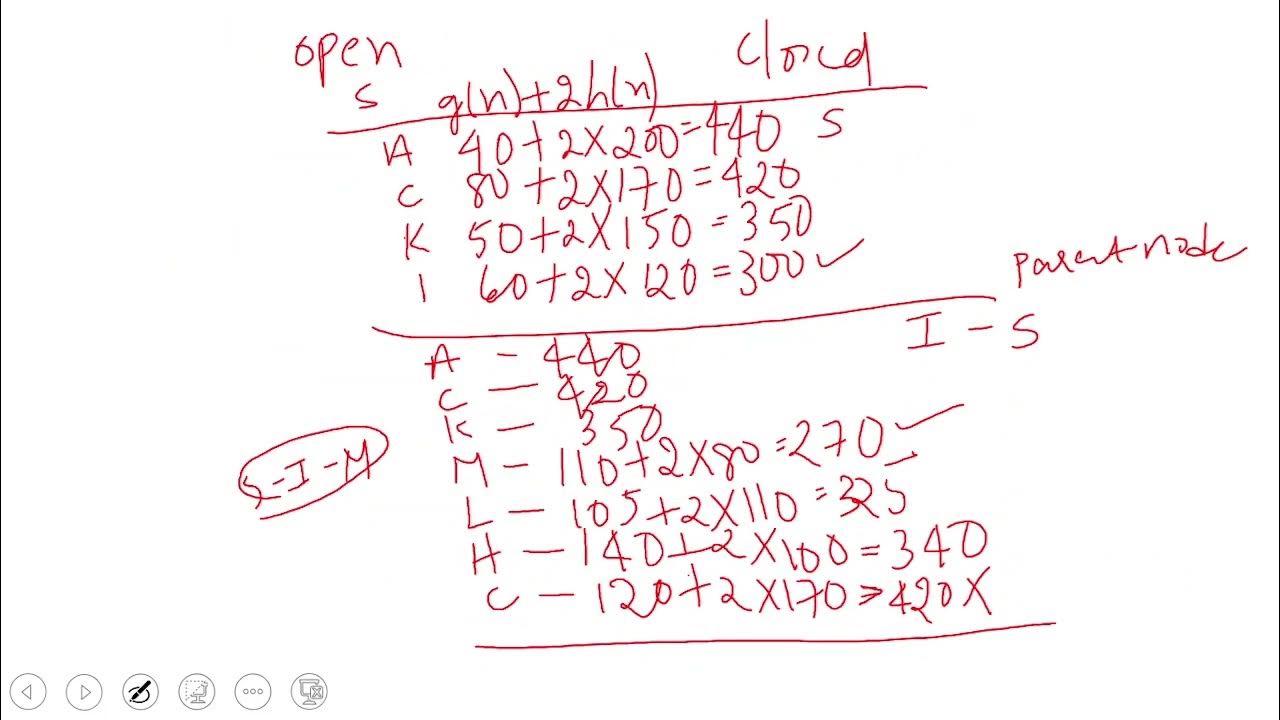 open closed
S g(n)+2h(n)
A 40+2×200=440 S
C 80+2×170=420
K 50+2×150=350
I 60+2×120=300✓
Parent node
I – S
A – 440
C – 420
K – 350
M – 110+2×80=270✓
S-I-M
L – 105+2×110=325
H – 140+2×100=340
C – 120+2×170=420×